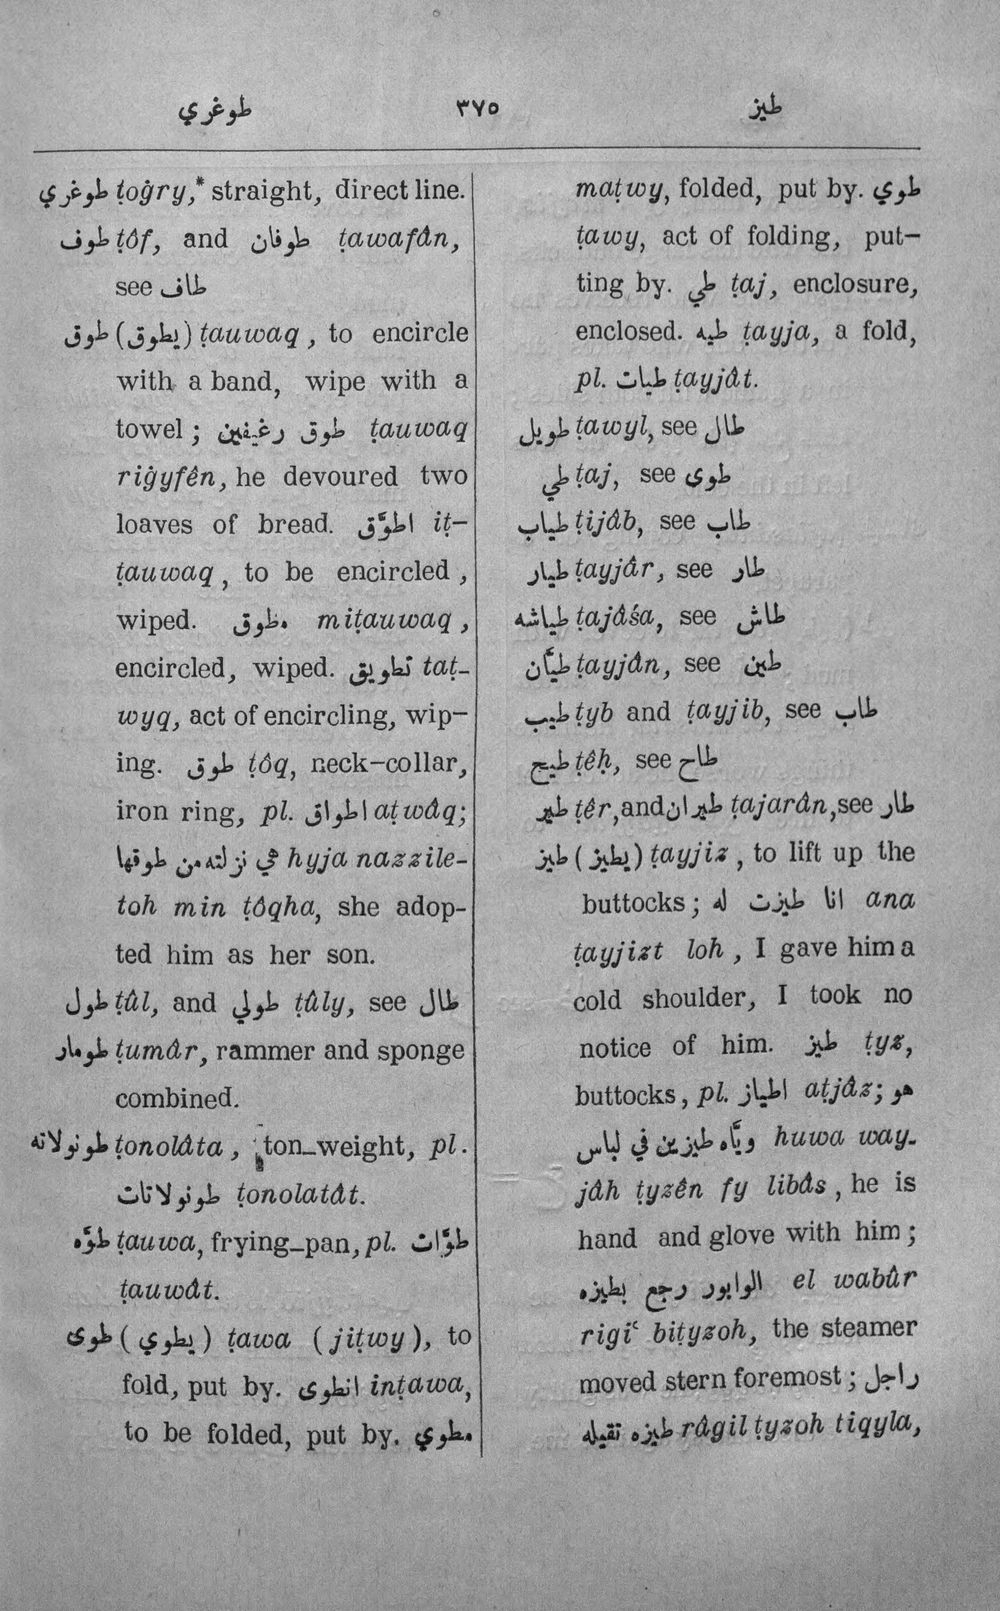 طوغري ٣٧٥ طيز
طوغري ṭoġry,* straight, direct line.
طوف ṭôf, and طوفان ṭawafân,
see طاف
طوق (يطوق) ṭauwaq, to encircle
with a band, wipe with a
towel; طوق رغيفين ṭauwaq
riġyfên, he devoured two
loaves of bread. اطوَّق iṭ-
ṭauwaq, to be encircled,
wiped. مطوق miṭauwaq,
encircled, wiped. تطويق taṭ-
wyq, act of encircling, wip-
ing. طوق ṭôq, neck-collar,
iron ring, pl. اطواق aṭwâq;
هي نزلته من طوقها hyja nazzile-
toh min ṭôqha, she adop-
ted him as her son.
طول ṭûl, and طولي ṭûly, see طال
طومار ṭumâr, rammer and sponge
combined.
طونولاته ṭonolâta, ton-weight, pl.
طونولاتات ṭonolatât.
طوَّه ṭauwa, frying-pan, pl. طوَّات
ṭauwât.
طوى (يطوي) ṭawa (jiṭwy), to
fold, put by. انطوى inṭawa,
to be folded, put by. مطوي
maṭwy, folded, put by. طوي
ṭawy, act of folding, put-
ting by. طي ṭaj, enclosure,
enclosed. طيه ṭayja, a fold,
pl. طيات ṭayjât.
طويل ṭawyl, see طال
طي ṭaj, see طوى
طياب ṭijâb, see طاب
طيار ṭayjâr, see طار
طياشه ṭajâśa, see طاش
طيَّان ṭayjân, see طين
طيب ṭyb and ṭayjib, see طاب
طيح ṭêḥ, see طاح
طير ṭêr, and طيران ṭajarân, see طار
طيز (يطيز) ṭayjiz, to lift up the
buttocks; انا طيزت له ana
ṭayjizt loh, I gave him a
cold shoulder, I took no
notice of him. طيز ṭyz,
buttocks, pl. اطياز aṭjâz; هو
ويَّاه طيزين في لباس huwa way-
jâh ṭyzên fy libâs, he is
hand and glove with him;
الوابور رجع بطيزه el wabûr
rigiʿ biṭyzoh, the steamer
moved stern foremost; راجل
طيزه تقيله râgil ṭyzoh tiqyla,